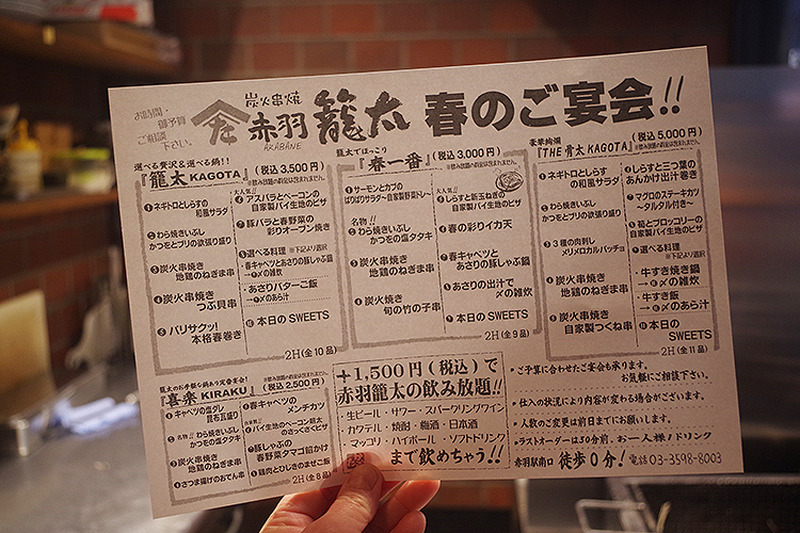 お時間・
御予算
ご相談
下さい。
炭火串焼
赤羽 籠太
AKABANE
春のご宴会!!
選べる贅沢&選べる鍋!!
『籠太 KAGOTA』
(税込 3,500円)
※飲み放題の料金は含まれません。
①ネギトロとしらすの
和風サラダ
②わら焼きいぶし
かつおとブリの欲張り盛り
③炭火串焼き
地鶏のねぎま串
④炭火串焼き
つぶ貝串
⑤パリサクッ!
本格春巻き
大人気!!
⑥アスパラとベーコンの
自家製パイ生地のピザ
⑦豚バラと春野菜の
彩りオーブン焼き
⑧選べる料理 ※下記より選択
・春キャベツとあさりの豚しゃぶ鍋
→⑨〆の雑炊
・あさりバターご飯
→⑨〆のあら汁
⑩本日の SWEETS
2H (全10品)
籠太でほっこり
『春一番』
(税込 3,000円)
※飲み放題の料金は含まれません。
①サーモンとカブの
ぱりぱりサラダ〜自家製野菜ドレ〜
名物!!
②わら焼きいぶし
かつおの塩タタキ
③炭火串焼き
地鶏のねぎま串
④炭火串焼き
旬の竹の子串
大人気!!
⑤しらすと新玉ねぎの
自家製パイ生地のピザ
⑥春の彩りイカ天
⑦春キャベツと
あさりの豚しゃぶ鍋
⑧あさりの出汁で
〆の雑炊
⑨本日の SWEETS
2H (全9品)
豪華絢爛
『THE 籠太 KAGOTA』
(税込 5,000円)
※飲み放題の料金は含まれません。
①ネギトロとしらすの
和風サラダ
②わら焼きいぶし
かつおとブリの欲張り盛り
③3種の肉刺し
メリメロカルパッチョ
④炭火串焼き
地鶏のねぎま串
⑤炭火串焼き
自家製つくね串
⑥しらすと三つ葉の
あんかけ出汁巻き
⑦マグロのステーキカツ
〜タルタル付き〜
⑧筍とブロッコリーの
自家製パイ生地のピザ
⑨選べる料理
※下記より選択
・牛すき焼き鍋
→⑩〆の雑炊
・牛すき飯
→⑩〆のあら汁
⑪本日の
SWEETS
2H (全11品)
籠太のお手軽な鍋より定番宴会!
『喜楽 KIRAKU』
(税込 2,500円)
※飲み放題の料金は含まれません。
①キャベツの塩ダレ
昆布瓦盛り
②名物!!わら焼きいぶし
かつおの塩タタキ
③炭火串焼き
地鶏のねぎま串
④さつま揚げのおでん串
⑤春キャベツの
メンチカツ
⑥パイ生地のベーコン筋大の
さっくさくピザ
⑦豚しゃぶの
春野菜タマゴ餡かけ
⑧鶏肉とひじきのまぜご飯
2H (全8品)
+1,500円(税込)で
赤羽籠太の飲み放題!!
・生ビール・サワー・スパークリングワイン
・カクテル・焼酎・梅酒・日本酒
・マッコリ・ハイボール・ソフトドリンク
まで飲めちゃう!!
・ご予算に合わせたご宴会も承ります。
お気軽にご相談下さい。
・仕入の状況により内容が変わる場合がございます。
・人数のご変更は前日までにお願いします。
・ラストオーダーは30分前、お一人様1ドリンク
赤羽駅南口 徒歩0分! 電話 03-3598-8003